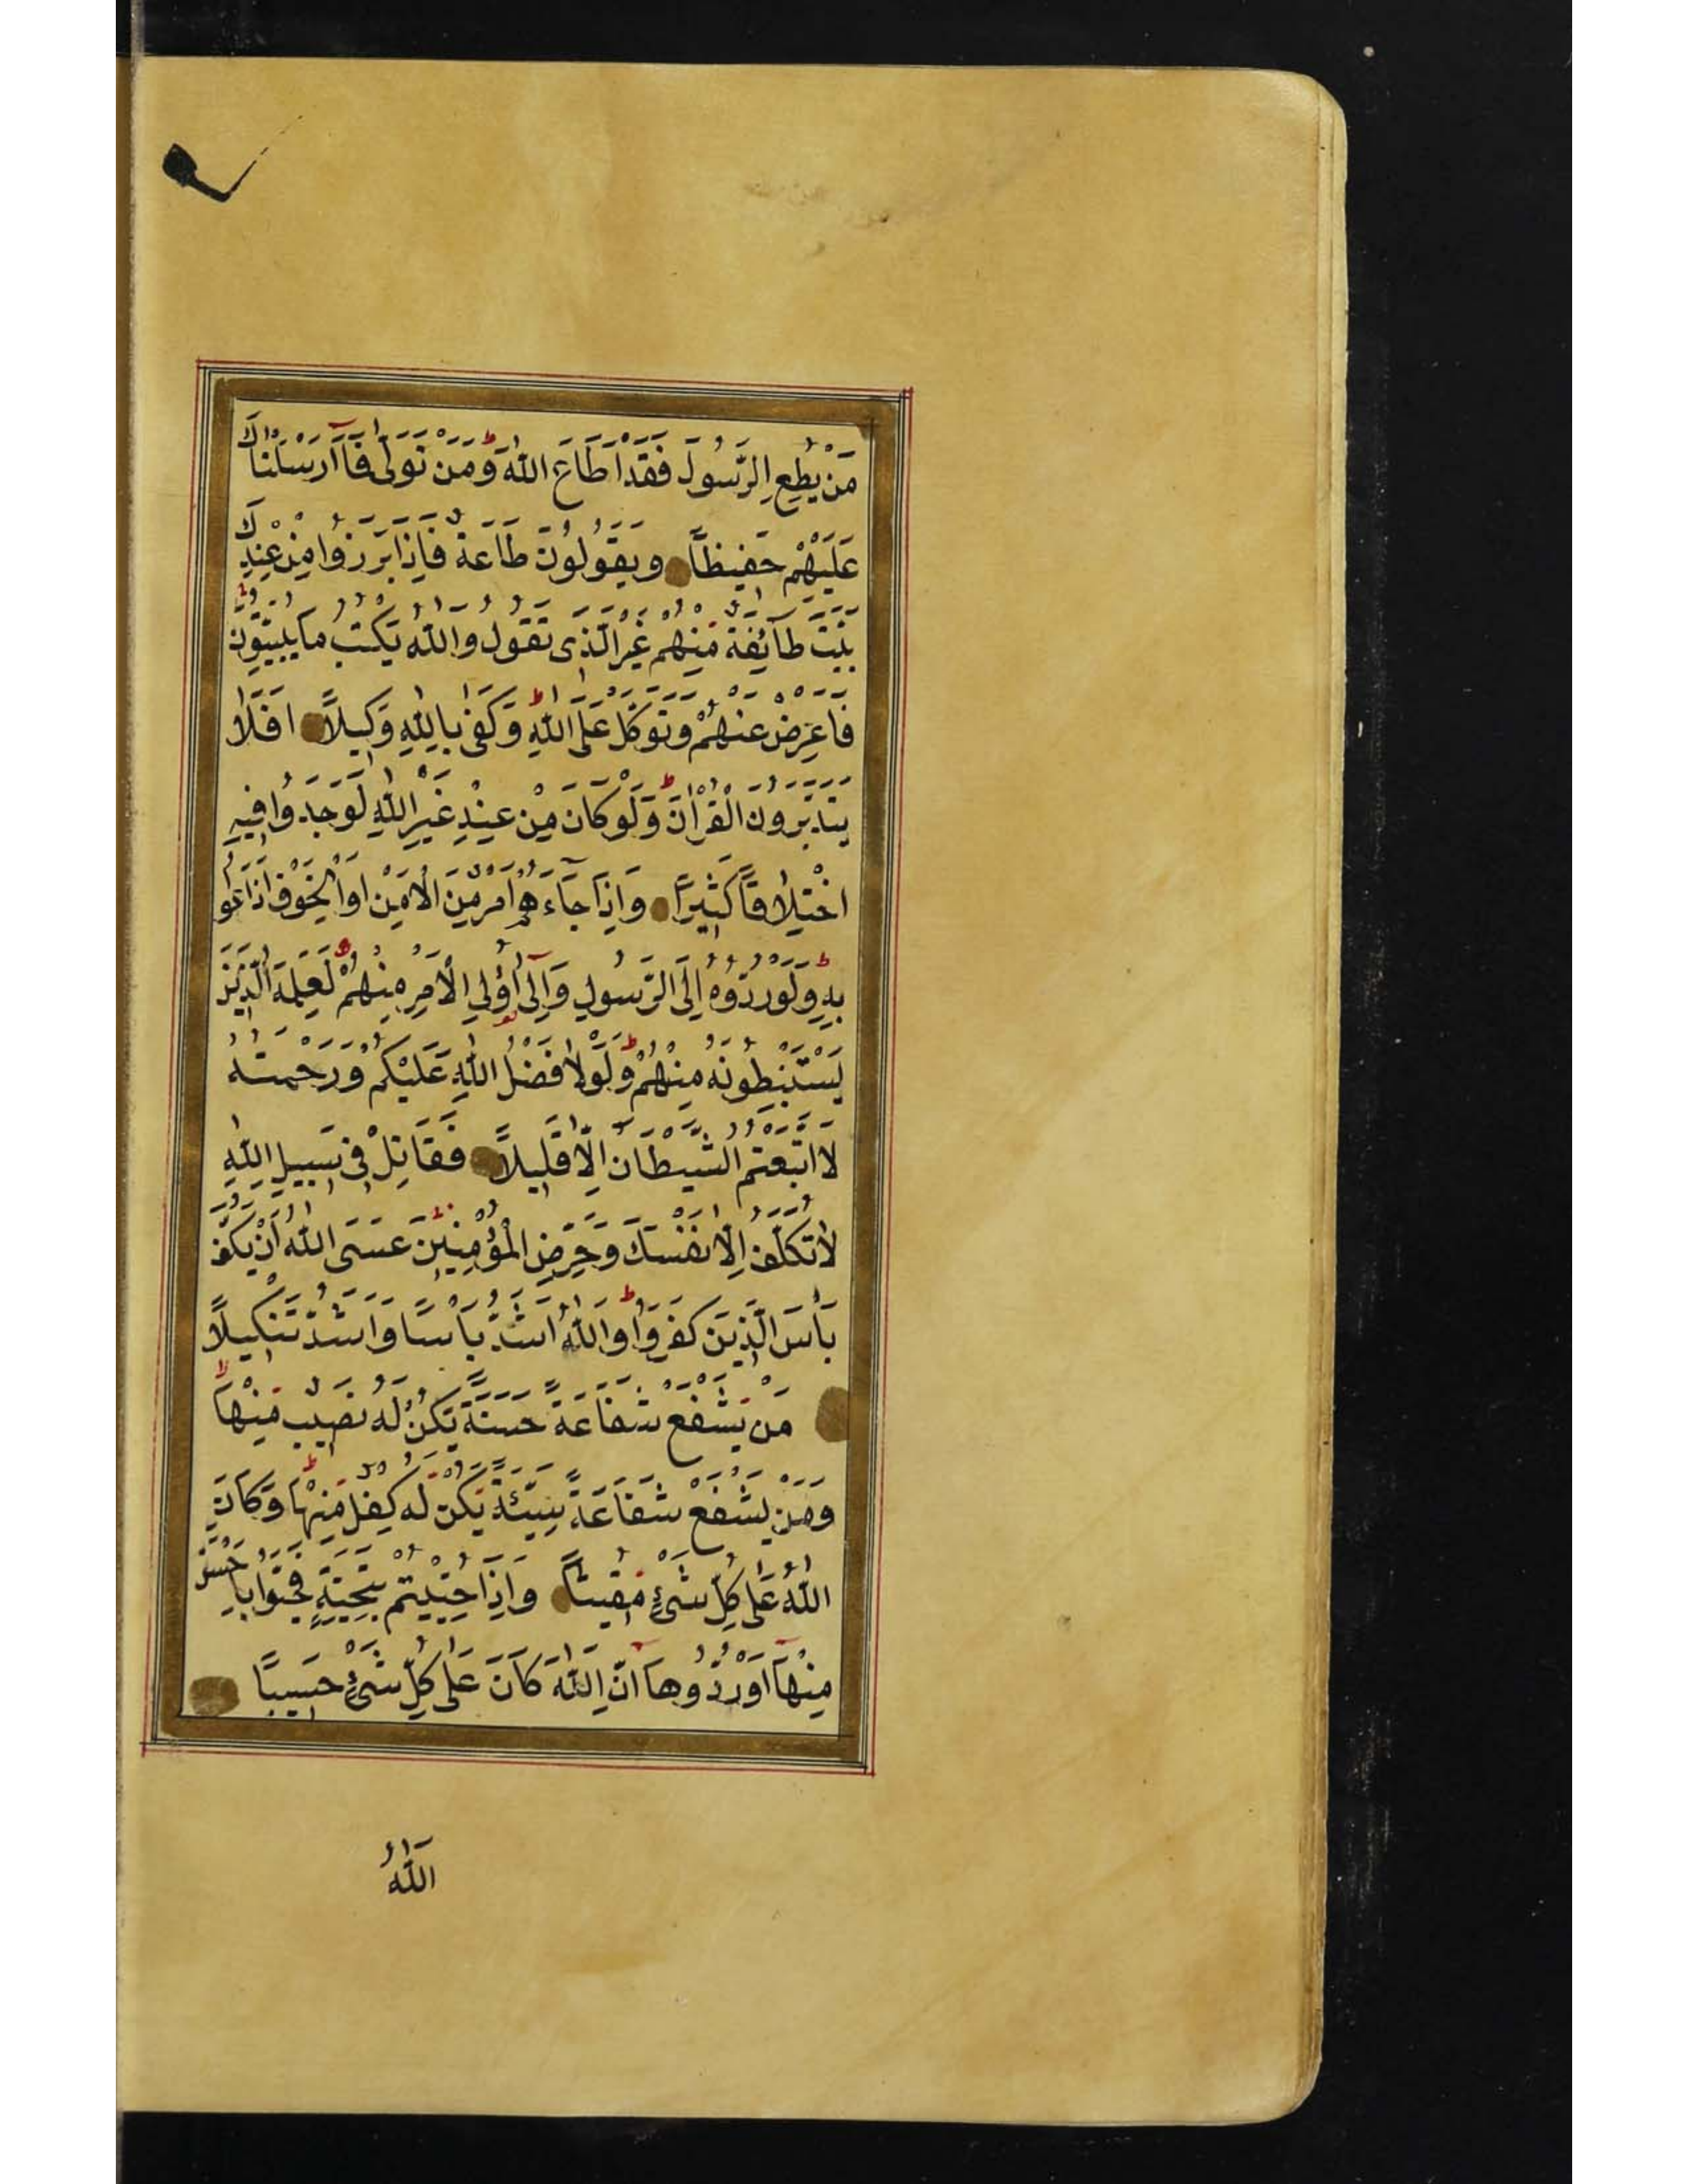 مَنْ يُطِعِ الرَّسُولَ فَقَدْ اَطَاعَ اللّٰهَ وَمَنْ تَوَلّٰى فَمَآ اَرْسَلْنَاكَ
عَلَيْهِمْ حَفِيظًا وَيَقُولُونَ طَاعَةٌ فَاِذَا بَرَزُوا مِنْ عِنْدِكَ
بَيَّتَ طَآئِفَةٌ مِنْهُمْ غَيْرَ الَّذِى تَقُولُ وَاللّٰهُ يَكْتُبُ مَا يُبَيِّتُونَ
فَاَعْرِضْ عَنْهُمْ وَتَوَكَّلْ عَلَى اللّٰهِ وَكَفٰى بِاللّٰهِ وَكِيلًا اَفَلَا
يَتَدَبَّرُونَ الْقُرْاٰنَ وَلَوْ كَانَ مِنْ عِنْدِ غَيْرِ اللّٰهِ لَوَجَدُوا فِيهِ
اخْتِلَافًا كَثِيرًا وَاِذَا جَآءَهُمْ اَمْرٌ مِنَ الْاَمْنِ اَوِ الْخَوْفِ اَذَاعُوا
بِهِ وَلَوْ رَدُّوهُ اِلَى الرَّسُولِ وَاِلٰٓى اُولِى الْاَمْرِ مِنْهُمْ لَعَلِمَهُ الَّذِينَ
يَسْتَنْبِطُونَهُ مِنْهُمْ وَلَوْلَا فَضْلُ اللّٰهِ عَلَيْكُمْ وَرَحْمَتُهُ
لَا اتَّبَعْتُمُ الشَّيْطَانَ اِلَّا قَلِيلًا فَقَاتِلْ فِى سَبِيلِ اللّٰهِ
لَا تُكَلَّفُ اِلَّا نَفْسَكَ وَحَرِّضِ الْمُؤْمِنِينَ عَسَى اللّٰهُ اَنْ يَكُفَّ
بَأْسَ الَّذِينَ كَفَرُوا وَاللّٰهُ اَشَدُّ بَأْسًا وَاَشَدُّ تَنْكِيلًا
مَنْ يَشْفَعْ شَفَاعَةً حَسَنَةً يَكُنْ لَهُ نَصِيبٌ مِنْهَا
وَمَنْ يَشْفَعْ شَفَاعَةً سَيِّئَةً يَكُنْ لَهُ كِفْلٌ مِنْهَا وَكَانَ
اللّٰهُ عَلٰى كُلِّ شَىْءٍ مُقِيتًا وَاِذَا حُيِّيتُمْ بِتَحِيَّةٍ فَحَيُّوا بِاَحْسَنَ
مِنْهَآ اَوْ رُدُّوهَا اِنَّ اللّٰهَ كَانَ عَلٰى كُلِّ شَىْءٍ حَسِيبًا
اَللّٰهُ